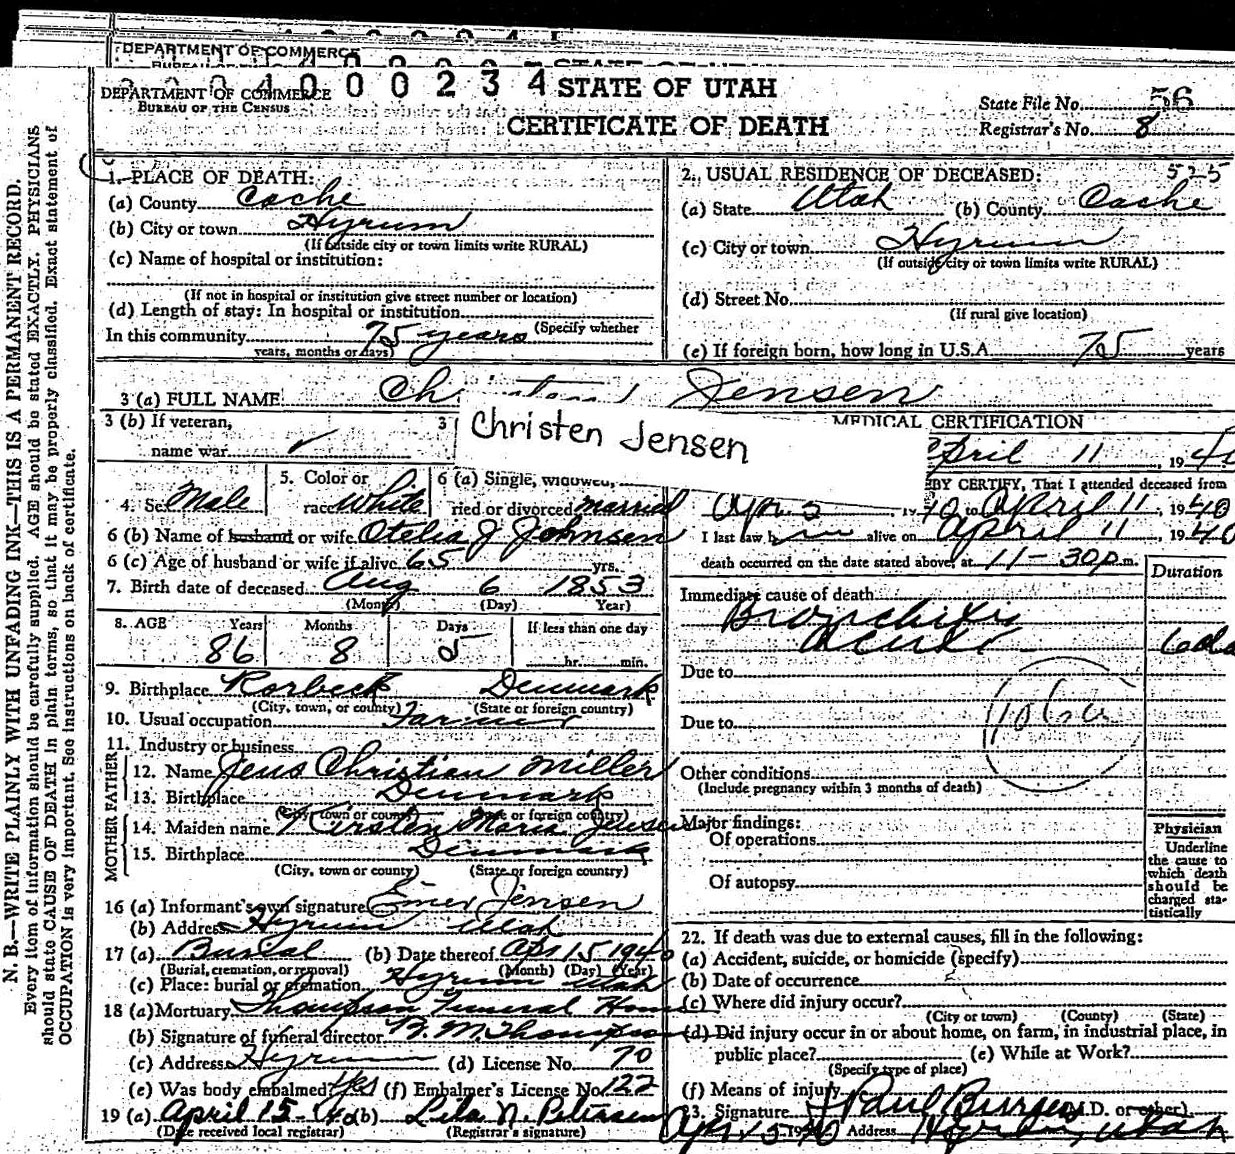 DEPARTMENT OF COMMERCE
0 0 0 4 0 0 0 2 3 4 STATE OF UTAH
DEPARTMENT OF COMMERCE
BUREAU OF THE CENSUS
CERTIFICATE OF DEATH
State File No. 56
Registrar's No. 8
N. B.—WRITE PLAINLY WITH UNFADING INK—THIS IS A PERMANENT RECORD.
Every item of information should be carefully supplied. AGE should be stated EXACTLY. PHYSICIANS
should state CAUSE OF DEATH in plain terms, so that it may be properly classified. Exact statement of
OCCUPATION is very important. See instructions on back of certificate.
1. PLACE OF DEATH:
(a) County Cache
(b) City or town Hyrum
(If outside city or town limits write RURAL)
(c) Name of hospital or institution:
(If not in hospital or institution give street number or location)
(d) Length of stay: In hospital or institution
(Specify whether
In this community 75 years
years, months or days)
2. USUAL RESIDENCE OF DECEASED: 525
(a) State Utah (b) County Cache
(c) City or town Hyrum
(If outside city or town limits write RURAL)
(d) Street No.
(If rural give location)
(e) If foreign born, how long in U.S.A. 75 years
3 (a) FULL NAME Christen Jensen
Christen Jensen
3 (b) If veteran,
name war
3
4. Sex Male
5. Color or
race White
6 (a) Single, widowed,
ried or divorced married
6 (b) Name of husband or wife Otelia J Johnsen
6 (c) Age of husband or wife if alive 65 yrs.
7. Birth date of deceased Aug 6 1853
(Month) (Day) Year)
8. AGE Years Months Days If less than one day
86 8 5 hr. min.
9. Birthplace Rorbeck Denmark
(City, town, or county) (State or foreign country)
10. Usual occupation Farmer
11. Industry or business
FATHER
12. Name Jens Christian Miller
13. Birthplace Denmark
(City, town or county) (State or foreign country)
MOTHER
14. Maiden name Kirsten Maria Jensen
15. Birthplace Denmark
(City, town or county) (State or foreign country)
16 (a) Informant's own signature Emer Jensen
(b) Address Hyrum Utah
17 (a) Burial (b) Date thereof Apr 15 1940
(Burial, cremation, or removal) (Month) (Day) (Year)
(c) Place: burial or cremation Hyrum Utah
18 (a) Mortuary Thompson Funeral Home
(b) Signature of funeral director B. M. Thompson
(c) Address Hyrum (d) License No. 70
(e) Was body embalmed? Yes (f) Embalmer's License No. 122
19 (a) April 15-40 (b) Lila N. Petersen
(Date received local registrar) (Registrar's signature)
MEDICAL CERTIFICATION
April 11, 1940
BY CERTIFY, That I attended deceased from
Apr. 2, 1940 to April 11, 1940
I last saw him alive on April 11, 1940
death occurred on the date stated above, at 11-30 p.m.
Duration
Immediate cause of death
Bronchitis
acute 6 da
Due to
Due to
106a
Other conditions
(Include pregnancy within 3 months of death)
Major findings:
Of operations
Of autopsy
Physician
Underline
the cause to
which death
should be
charged sta-
tistically
22. If death was due to external causes, fill in the following:
(a) Accident, suicide, or homicide (specify)
(b) Date of occurrence
(c) Where did injury occur?
(City or town) (County) (State)
(d) Did injury occur in or about home, on farm, in industrial place, in
public place? (e) While at Work?
(Specify type of place)
(f) Means of injury
23. Signature J Paul Burgess (M.D. or other)
Apr 15 1940 Address Hyrum, Utah